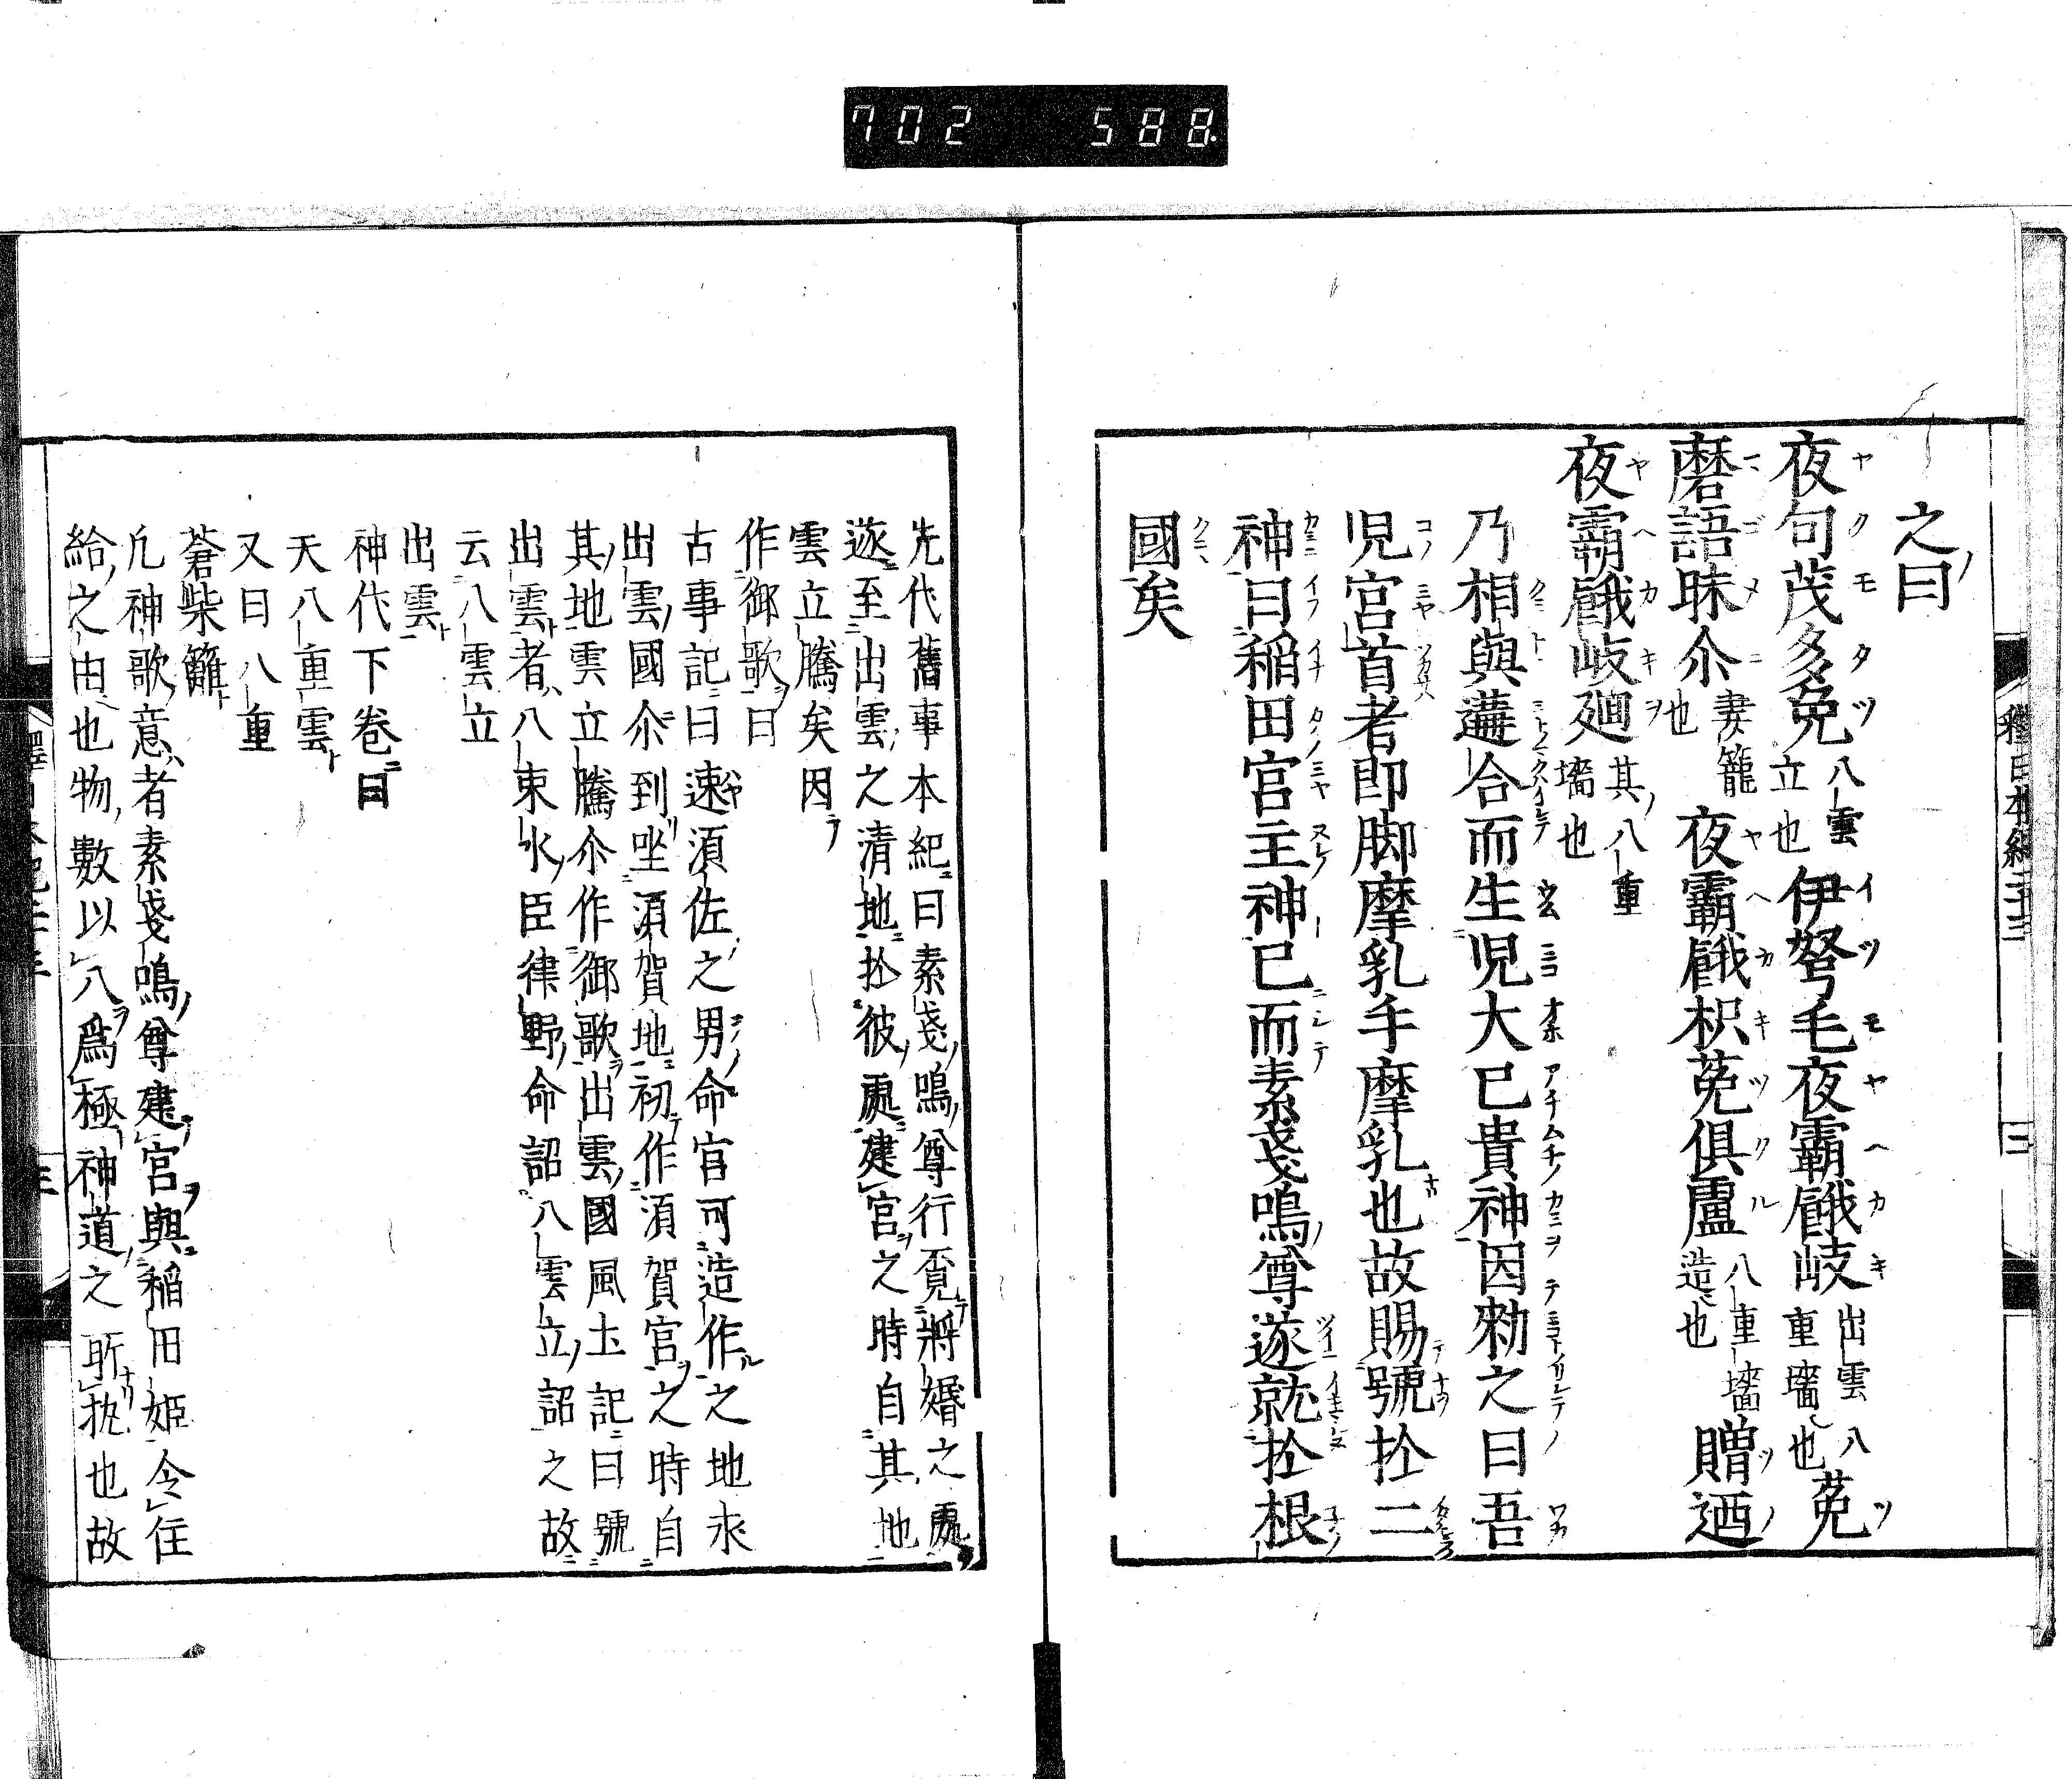 702 588
之曰
夜句茂多免八雲立也伊弩毛夜霸餓岐出雲八重墻也菟
磨語昧尒妻籠也夜霸餓枳菟俱盧八重墻造也贈廼
夜霸餓岐廻其八重墻也
乃相與遘合而生児大已貴神因勑之曰吾
児宮首者即脚摩乳手摩乳也故賜號扵二
神曰稲田宮主神已而素戔嗚尊遂就扵根
國矣
先代舊事本紀曰素戔嗚尊行覔將婚之處
遂至出雲之清地扵彼處建宮之時自其地
雲立騰矣因
作御歌曰
古事記曰速湏佐之男命宮可造作之地求
出雲國尒到坐湏賀地初作湏賀宮之時自
其地雲立騰尒作御歌出雲國風土記曰號
出雲者八束水臣律野命詔八雲立詔之故
云八雲立
出雲
神代下巻曰
天八重雲
又曰八重
蒼柴籬
凡神歌意者素戔嗚尊建宮與稲田姫令住
給之由也物數以八爲極神道之所執也故